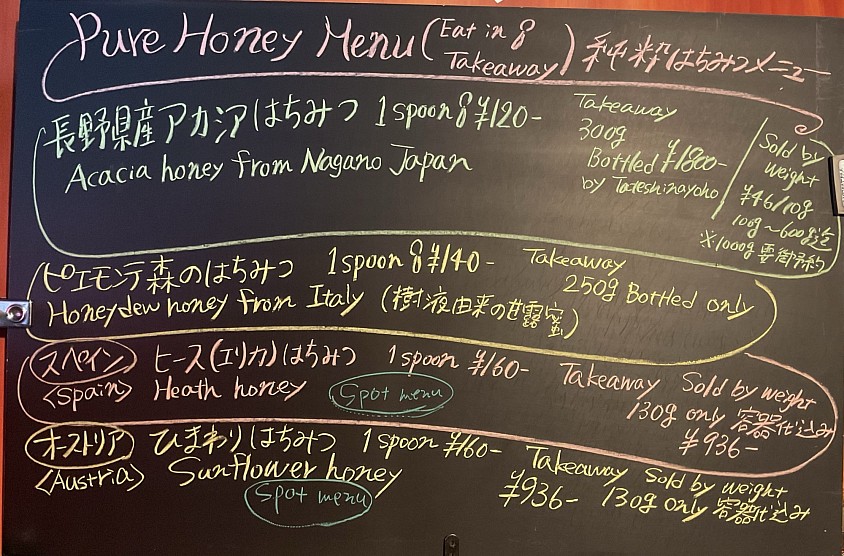 Pure Honey Menu (Eat in & Takeaway) 純粋はちみつメニュー
長野県産アカシアはちみつ 1 spoon 8 ¥120-
Acacia honey from Nagano Japan
Takeaway
300g
Bottled ¥1800-
by Tateshinayoho
Sold by
weight
¥46/10g
100g〜600g迄
※1000g 要御予約
ピエモンテ森のはちみつ 1 spoon 8 ¥140- Takeaway
Honeydew honey from Italy (樹液由来の甘露蜜) 250g Bottled only
スペイン ヒース(エリカ)はちみつ 1 spoon ¥160- Takeaway Sold by weight
<Spain> Heath honey Spot menu 130g only 容器代込み
¥936-
オーストリア ひまわりはちみつ 1 spoon ¥160- Takeaway Sold by weight
<Austria> Sunflower honey ¥936- 130g only 容器代込み
Spot menu